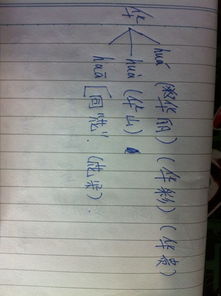 华
huá (繁华丽) (华彩) (华裔)
huà (华山)
huā [同“花”. (花朵).